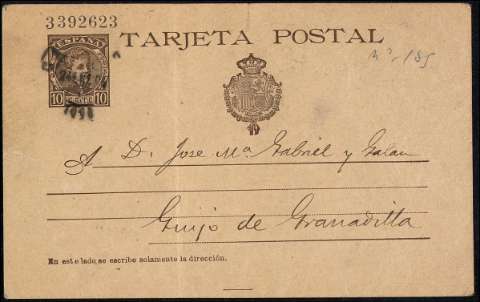 3392623
ESPAÑA
TARJETA POSTAL
10 10
Nº. 185
A D. Jose Mª Gabriel y Galan
Guijo de Granadilla
En este lado se escribe solamente la dirección.